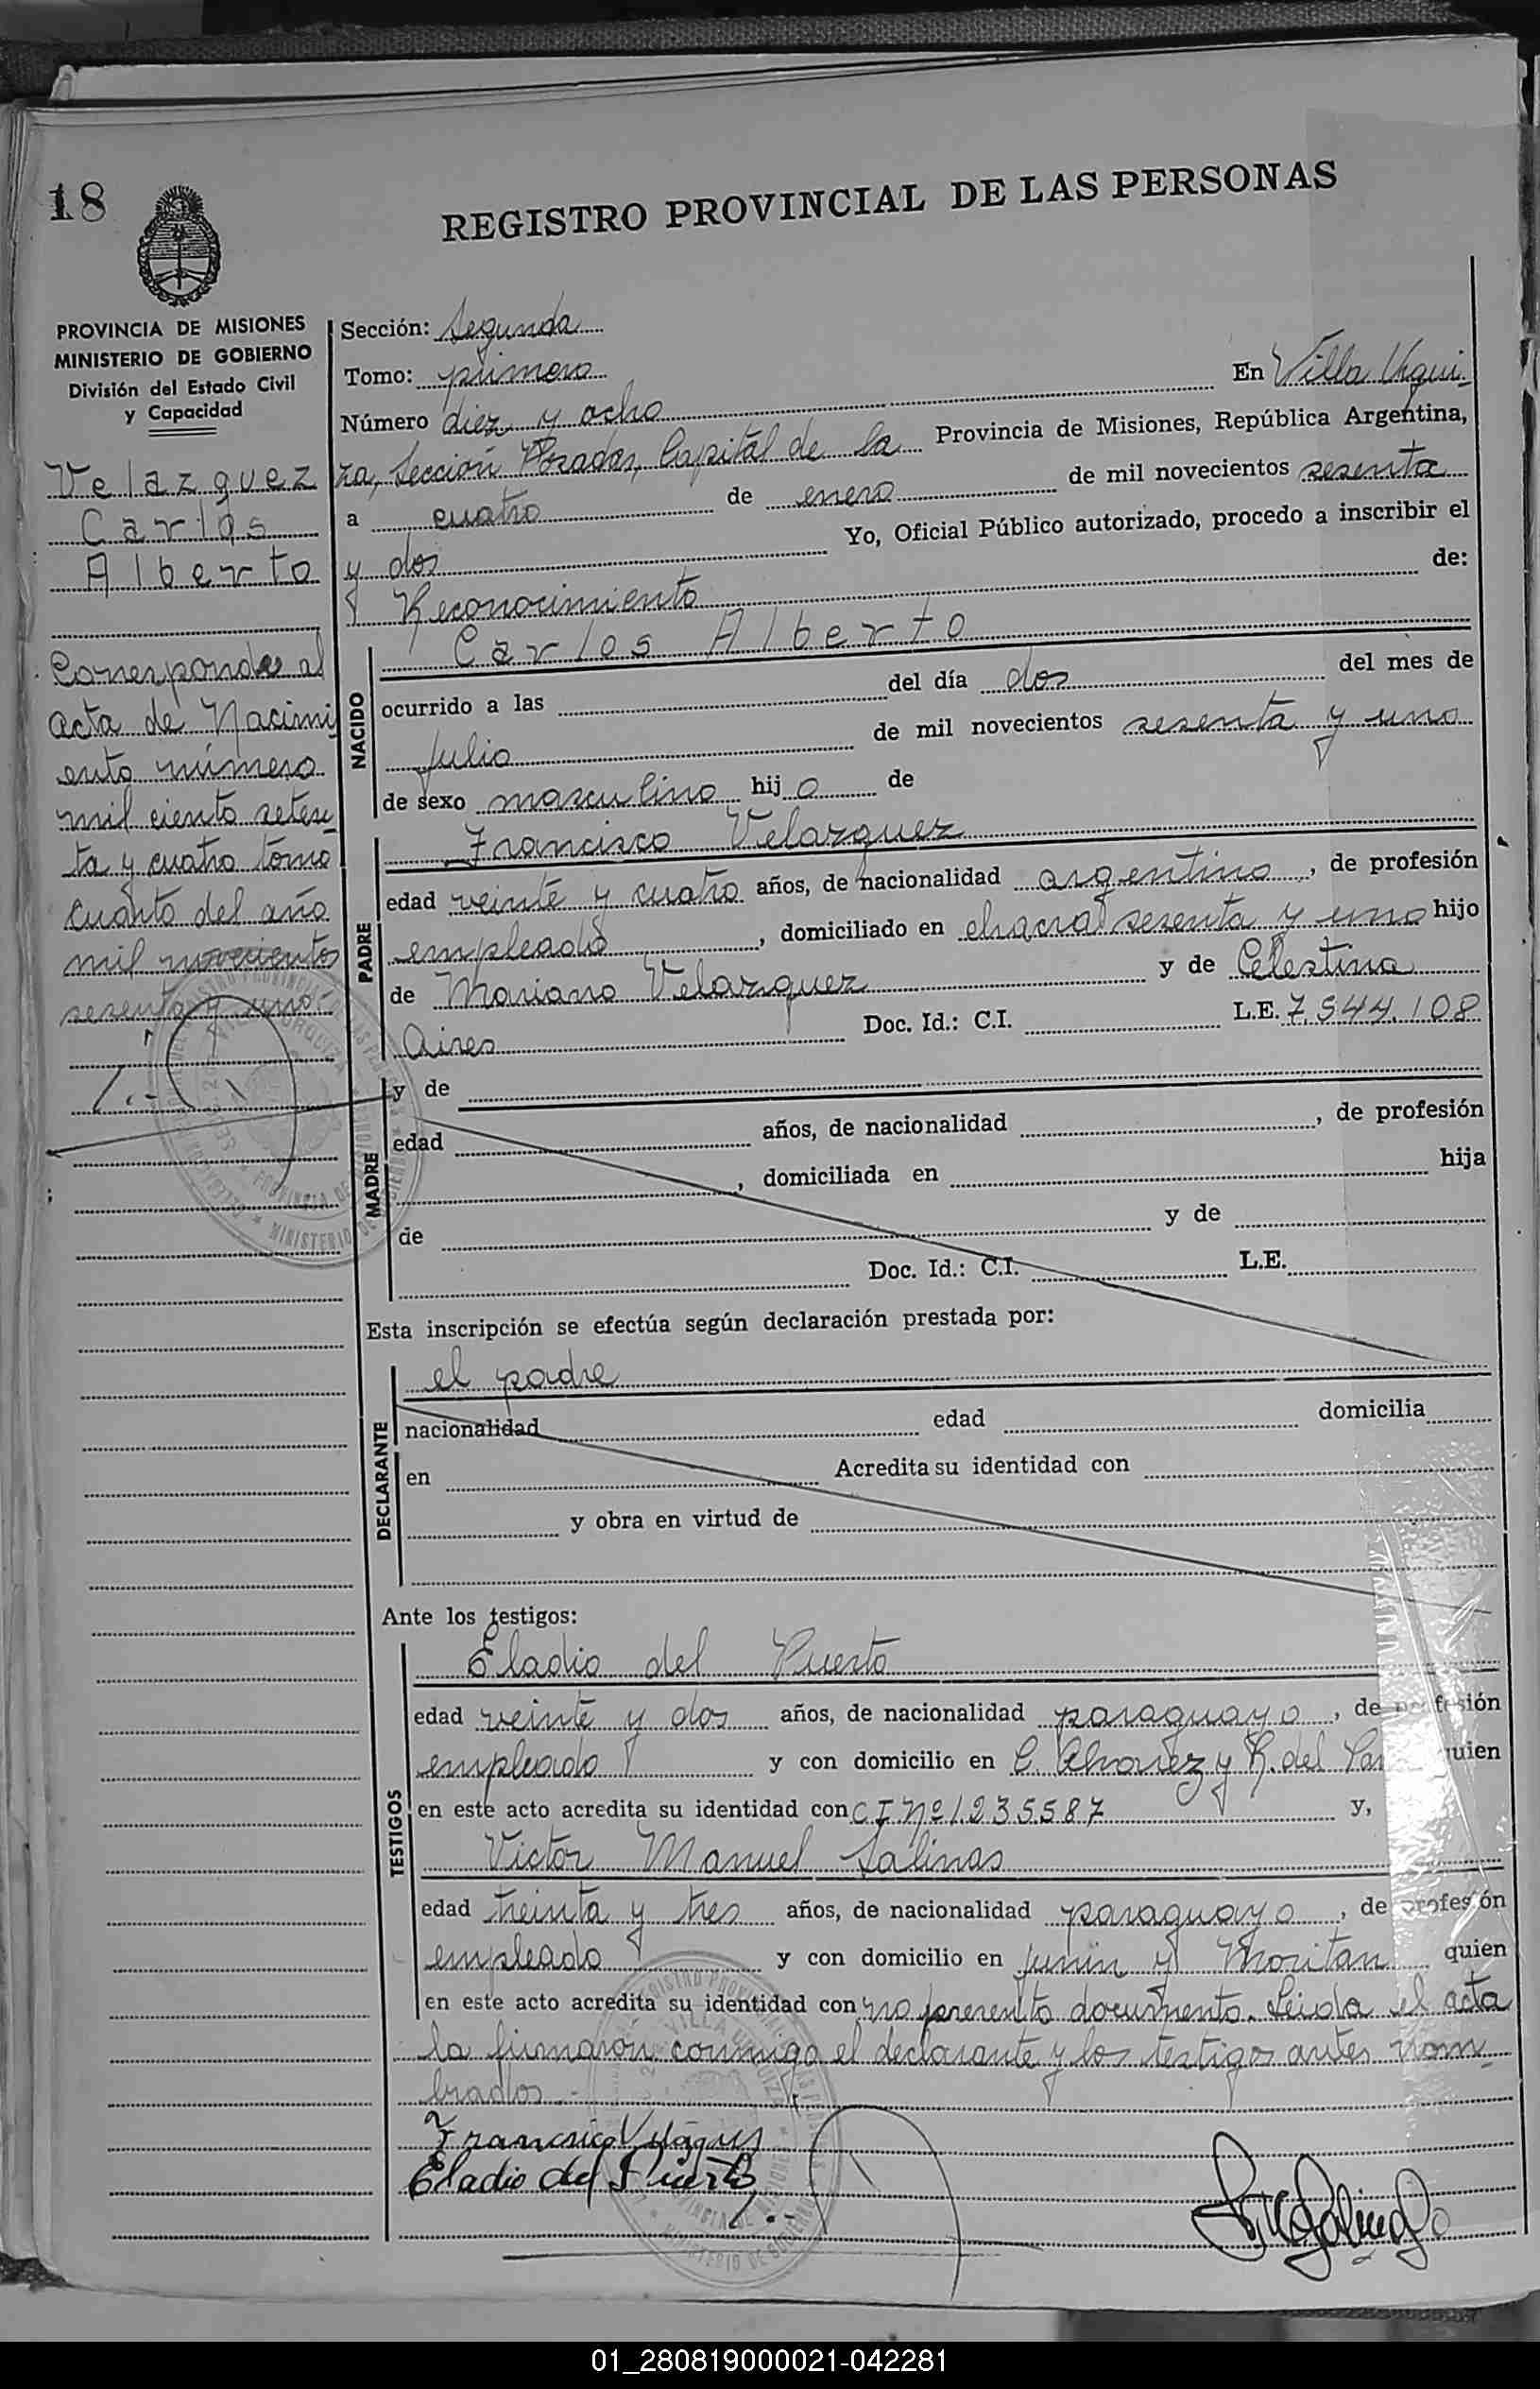 18
REGISTRO PROVINCIAL DE LAS PERSONAS
PROVINCIA DE MISIONES
MINISTERIO DE GOBIERNO
División del Estado Civil
y Capacidad
Velazquez
Carlos
Alberto
Corresponde al
acta de Nacimi
ento número
mil ciento seten_
ta y cuatro tomo
cuarto del año
mil novecientos
sesenta y uno
Sección: Segunda
Tomo: primero
Número diez y ocho En Villa Urqui_
za, Sección Posadas, Capital de la Provincia de Misiones, República Argentina,
a cuatro de enero de mil novecientos sesenta
y dos Yo, Oficial Público autorizado, procedo a inscribir el
Reconocimiento de:
NACIDO
Carlos Alberto
ocurrido a las del día dos del mes de
Julio de mil novecientos sesenta y uno
de sexo masculino hijo de
PADRE
Francisco Velazquez
edad veinte y cuatro años, de nacionalidad argentino, de profesión
empleado, domiciliado en chacra sesenta y uno hijo
de Mariano Velazquez y de Celestina
Aires Doc. Id.: C.I. L.E. 7.544.108
MADRE
y de
edad años, de nacionalidad , de profesión
, domiciliada en hija
de y de
Doc. Id.: C.I. L.E.
Esta inscripción se efectúa según declaración prestada por:
DECLARANTE
el padre
nacionalidad edad domicilia
en Acredita su identidad con
y obra en virtud de
Ante los testigos:
TESTIGOS
Eladio del Puerto
edad veinte y dos años, de nacionalidad paraguayo, de profesión
empleado y con domicilio en C. Alvarez y R. del quien
en este acto acredita su identidad con C I Nº 1.235.587 y,
Victor Manuel Salinas
edad treinta y tres años, de nacionalidad paraguayo, de profesión
empleado y con domicilio en Junin y Moritan quien
en este acto acredita su identidad con no presentó documento. Leida el acta
la firmaron conmigo el declarante y los testigos antes nom_
brados.-
Francisco
Eladio del Puerto
01_280819000021-042281